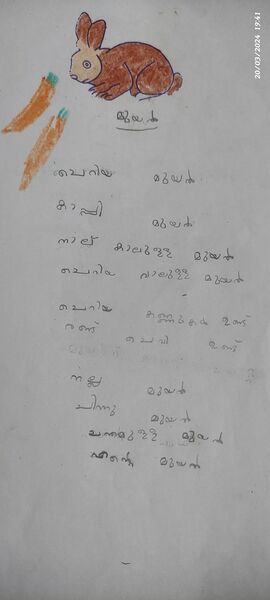 20/03/2024 19:41
മുയൽ
ചെറിയ മുയൽ
കാപ്പി മുയൽ
നാല് കാലുള്ള മുയൽ
ചെറിയ വാലുള്ള മുയൽ
ചെറിയ കണ്ണുകൾ ഉണ്ട്
രണ്ട് ചെവി ഉണ്ട്
നല്ല മുയൽ
ചിന്നു മുയൽ
ചന്തമുള്ള മുയൽ
എന്റെ മുയൽ